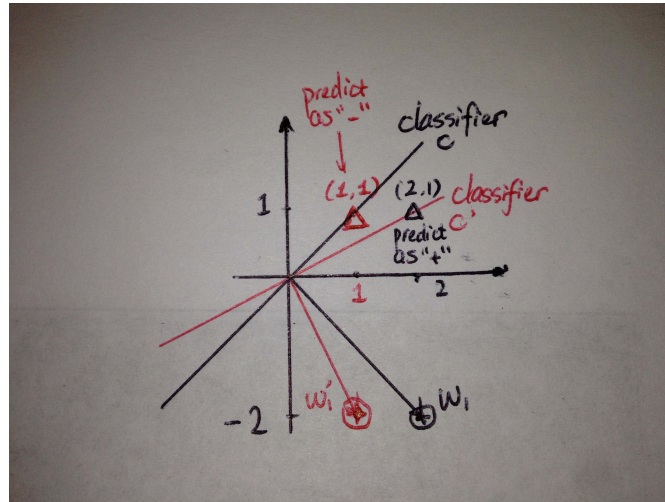 predict
as "-"
classifier
c
(1,1)
(2,1)
classifier
c'
1
predict
as "+"
1
2
-2
w₁'
w₁